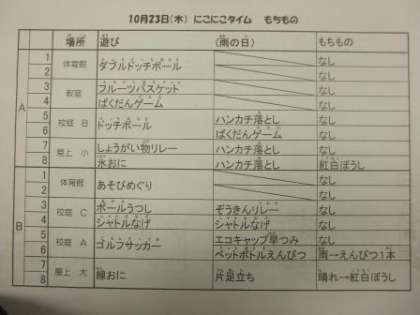 10月23日(木) にこにこタイム もちもの
場所 遊び (雨の日) もちもの
A
1 体育館 ダブルドッチボール なし
2 なし
3 教室 フルーツバスケット なし
4 ばくだんゲーム なし
5 校庭 B ドッチボール ハンカチ落とし なし
6 ばくだんゲーム なし
7 屋上 小 しょうがい物リレー ハンカチ落とし なし
8 氷おに ハンカチ落とし 紅白ぼうし
B
1 体育館 あそびめぐり なし
2 なし
3 校庭 C ボールうつし ぞうきんリレー なし
4 シャトルなげ シャトルなげ なし
5 校庭 A ゴルフサッカー エコキャップ早つみ なし
6 ペットボトルえんぴつ 雨→えんぴつ1本
7 屋上 大 線おに 片足立ち なし
8 晴れ→紅白ぼうし